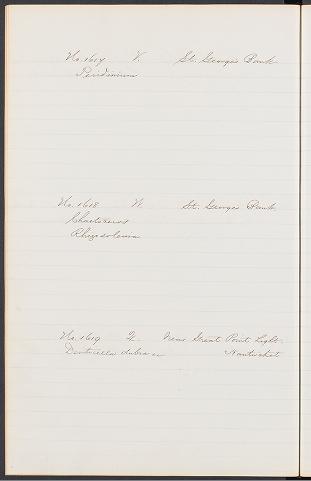 No. 1617 V. St. Georges Bank
Peridinium
No. 1618 W. St. Georges Bank
Chaetoceros
Rhizosolenia
No. 1619 Near Great Point Light.
Denticella Nantucket